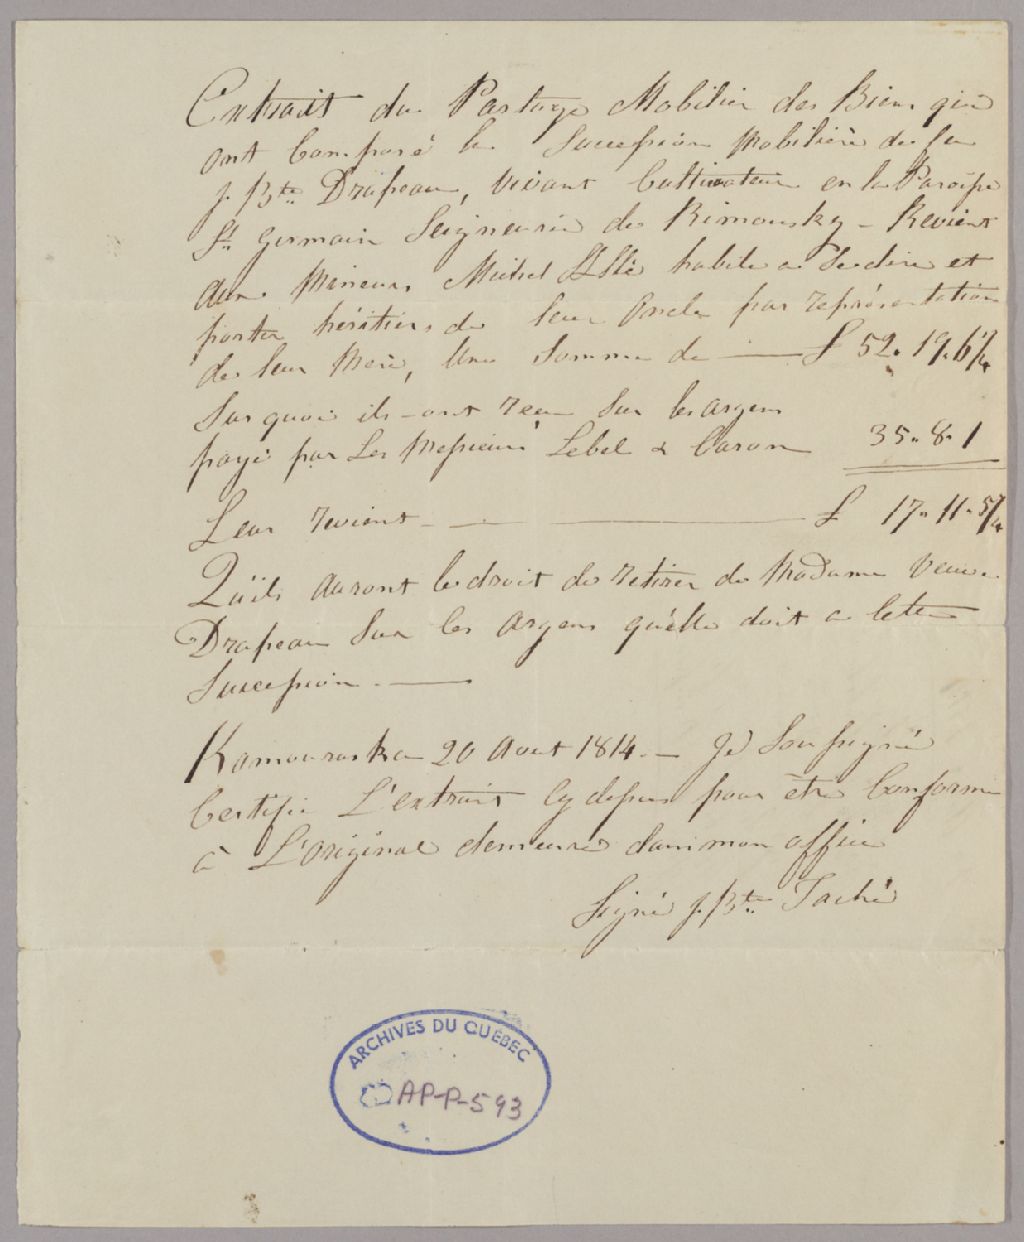 Extrait du Partage Mobilier des Biens qui
ont Composé la Succession Mobilière de feu
J. Bte. Drapeau, vivant Cultivateur en la Paroisse
St. Germain Seigneurie de Rimousky - Revient
aux Mineurs Michel habile a se dire et
porter héritiers de leur Oncle par représentation
de leur Mere, Une Somme de — £ 52. 19. 6 1/4
Sur quoi ils - ont reçu Sur les argens
payé par Les Messieurs Lebel & Caron 35. 8. 1
Leur revient — £ 17. 11. 5 1/4
Qu'ils auront le droit de retirer de Madame Veuve
Drapeau Sur les Argens qu'elle doit a cette
Succession. —
Kamouraska 20 Aout 1814. — Je Soussigné
Certifie L'extrait cy dessus pour être Conforme
à L'Original demeuré dans mon office
Signé J. Bte. Taché
ARCHIVES DU QUÉBEC
AP-P-593